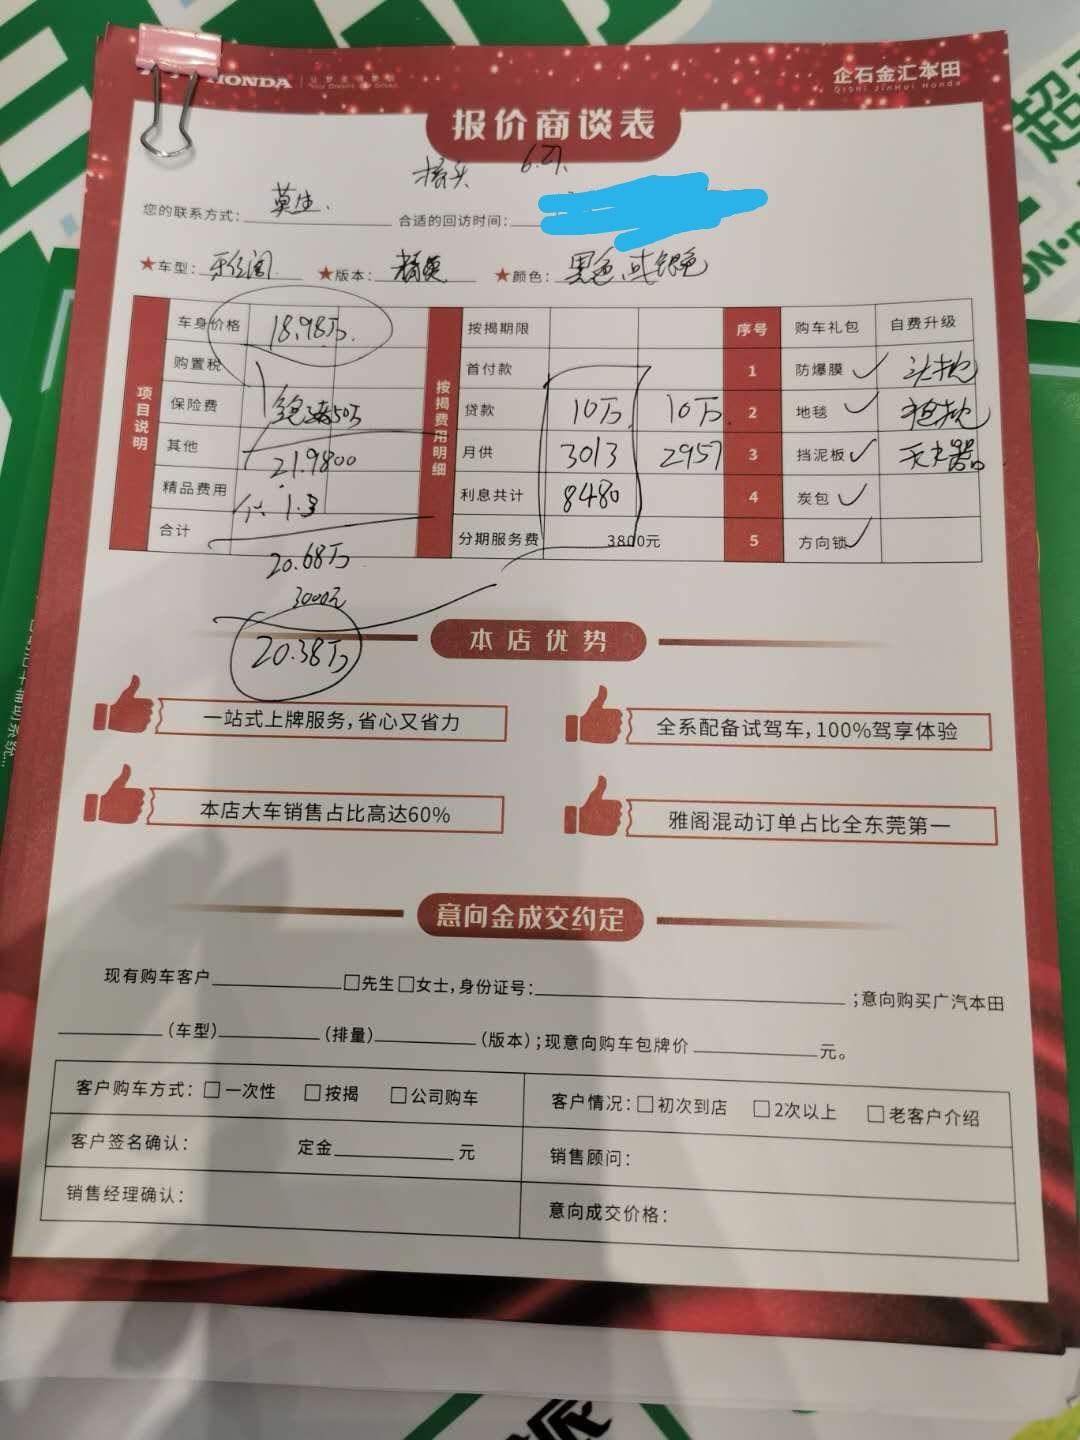 HONDA 让梦走得更远
企石金汇本田
QiShi JinHui Honda
报价商谈表
桥头 6.27.
您的联系方式: 莫生. 合适的回访时间:
★车型: 牙阁 ★版本: 精英 ★颜色: 黑色或银色
项目说明
车身价格 18.98万.
购置税
保险费 50万
其他 21.9800
精品费用 1.3
合计
20.68万
3000元
20.38万
按揭费用明细
按揭期限
首付款
贷款 10万. 10万.
月供 3013 2957
利息共计 8480
分期服务费 3800元
序号 购车礼包 自费升级
1 防爆膜 ✓ 头枕
2 地毯 ✓ 抱枕
3 挡泥板 ✓ 灭火器
4 炭包 ✓
5 方向锁 ✓
本店优势
一站式上牌服务,省心又省力
全系配备试驾车,100%驾享体验
本店大车销售占比高达60%
雅阁混动订单占比全东莞第一
意向金成交约定
现有购车客户____□先生□女士,身份证号:____;意向购买广汽本田
____(车型)____(排量)____(版本);现意向购车包牌价____元。
客户购车方式:□一次性 □按揭 □公司购车
客户情况:□初次到店 □2次以上 □老客户介绍
客户签名确认: 定金____元
销售顾问:
销售经理确认:
意向成交价格: